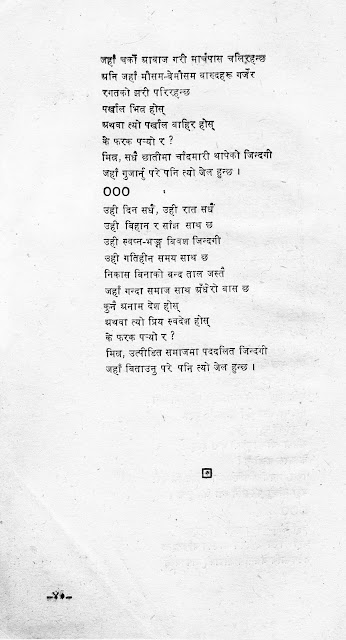 जहाँ चर्को आवाज गरी मार्चपास चलिरहन्छ
अनि जहाँ मौसम-बेमौसम बारुदहरू गर्जेर
रगतको झरी परिरहन्छ
पर्खाल भित्र होस्
अथवा त्यो पर्खाल बाहिर होस्
के फरक पऱ्यो र ?
मित्र, सधैं छातीमा चाँदमारी थापेको जिन्दगी
जहाँ गुजार्नु परे पनि त्यो जेल हुन्छ ।
OOO
उही दिन सधैं, उही रात सधैं
उही बिहान र साँझ साथ छ
उही स्वप्न-भङ्ग विवश जिन्दगी
उही गतिहीन समय साथ छ
निकास विनाको बन्द ताल जस्तै
जहाँ गन्दा समाज साथ अँधेरो बास छ
कुनै अनाम देश होस्
अथवा त्यो प्रिय स्वदेश होस्
के फरक पऱ्यो र ?
मित्र, उत्पीडित समाजमा पददलित जिन्दगी
जहाँ बिताउनु परे पनि त्यो जेल हुन्छ ।